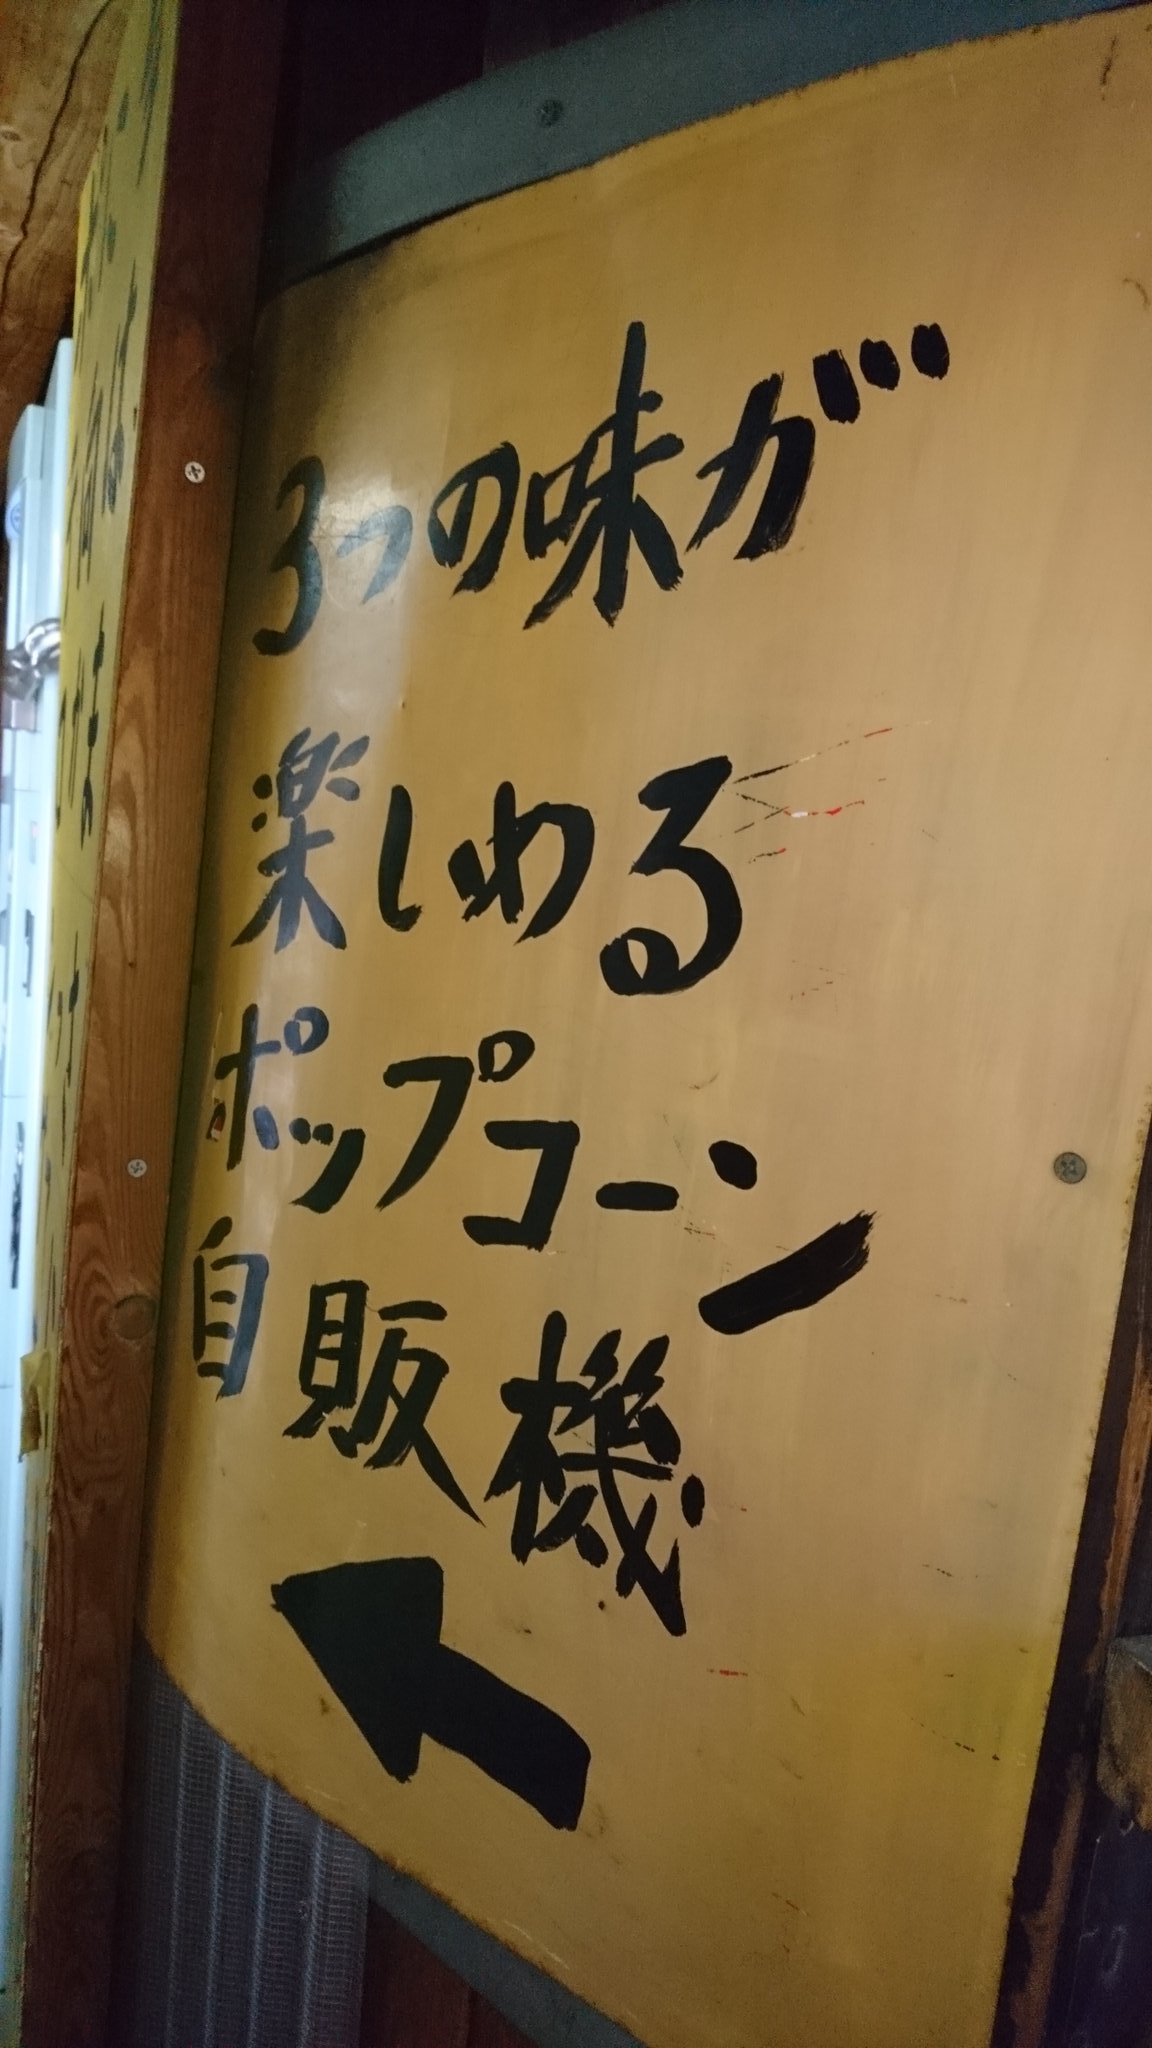 3つの味が…
楽しめる
ポップコーン
自販機